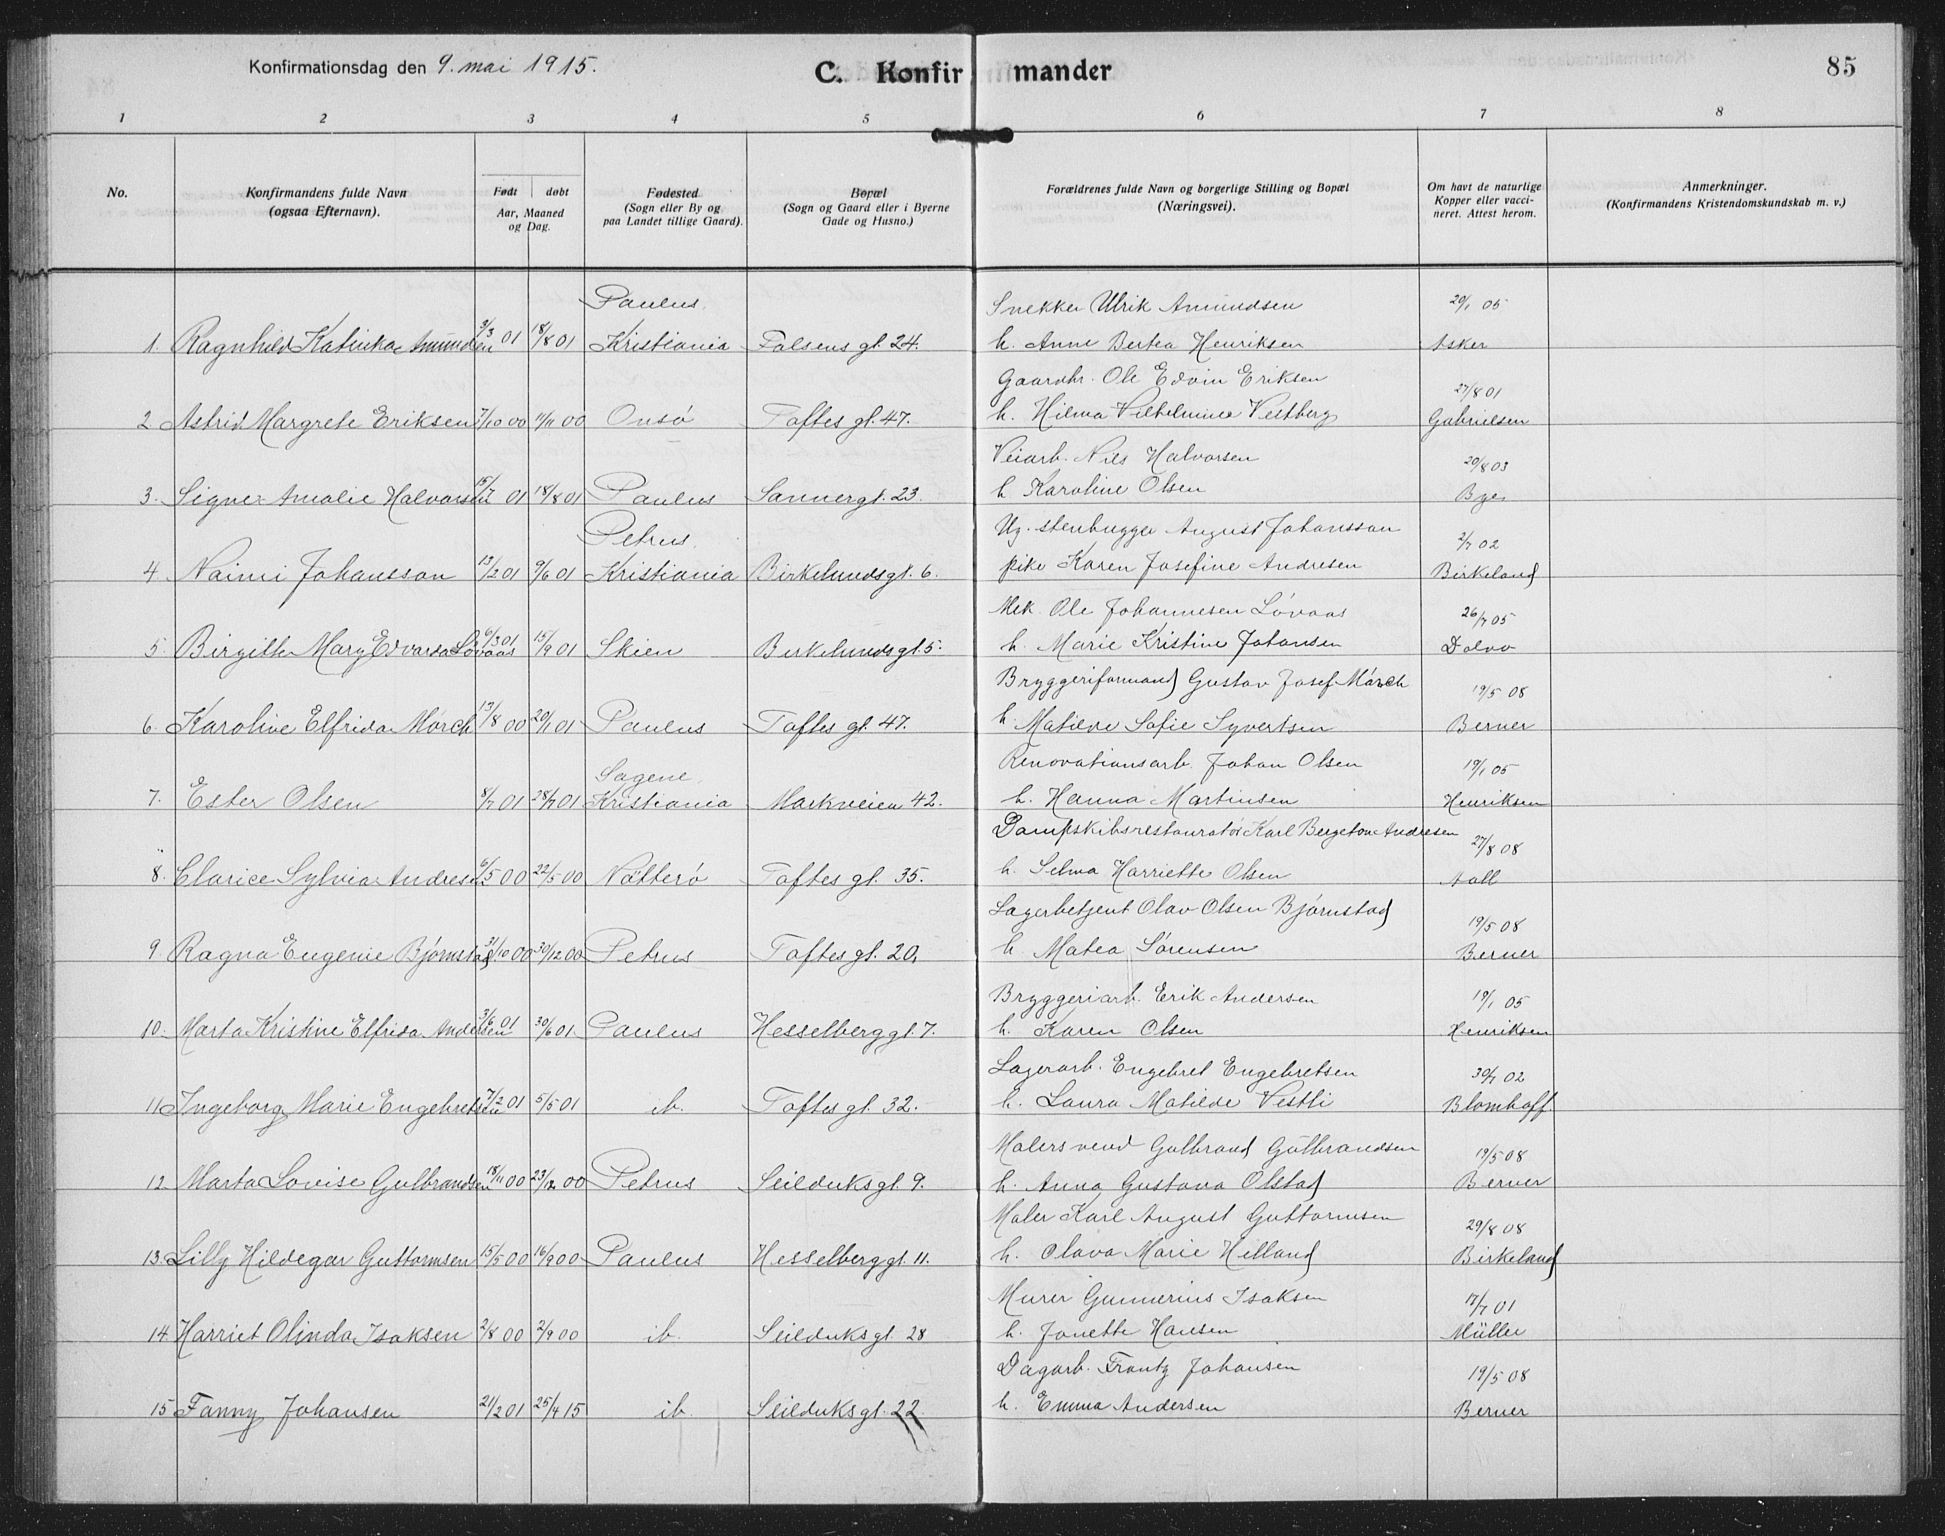 Konfirmationsdag den 9. mai 1915.
C. Konfirmander
85
1 2 3 4 5 6 7 8
No.
Konfirmandens fulde Navn
(ogsaa Efternavn).
Født døbt
Aar, Maaned
og Dag.
Fødested
(Sogn eller By og
paa Landet tillige Gaard).
Bopæl
(Sogn og Gaard eller i Byerne
Gade og Husno.)
Forældrenes fulde Navn og borgerlige Stilling og Bopæl
(Næringsvei).
Om havt de naturlige
Kopper eller vacci-
neret. Attest herom.
Anmerkninger.
(Konfirmandens Kristendomskundskab m. v.)
Paulus, Snekker Ulrik Amundsen 20/1 05
1. Ragnhild Katinka Amundsen 9/3 01 18/8 01 Kristiania Falsens gt. 24. h. Anne Bertea Henriksen Asker
Gaardbr. Ole Edvin Eriksen 27/8 01
2. Astrid Margrete Eriksen 7/10 00 11/11 00 Onsö Toftes gt. 47. h. Hilma Vilhelmine Vestberg Gabrielsen
Veiarb. Nils Halvorsen 20/8 03
3. Signe Amalie Halvorsen 15/7 01 18/8 01 Paulus Sannergt. 23. h. Karoline Olsen Bye
Petrus, Ug. stenhugger August Johansson 2/7 02
4. Naimi Johansson 13/2 01 9/6 01 Kristiania Birkelundsgt. 6. pike Karen Josefine Andresen Birkeland
Mek. Ole Johannesen Lövaas 26/7 05
5. Birgitte Mary Edvarda Lövaas 6/3 01 15/9 01 Skien Birkelundsgt. 5. h. Marie Kristine Johansen Dalvo
Bryggeriformand Gustav Josef Mörch 19/5 08
6. Karoline Elfrida Mörch 13/8 00 20/1 01 Paulus Toftes gt. 47. h. Matilde Sofie Syvertsen Berner
Sagene, Renovationsarb. Johan Olsen 19/1 05
7. Ester Olsen 8/7 01 28/7 01 Kristiania Markveien 42. h. Hanna Martinsen Henriksen
Dampskibsrestauratör Karl Bergeton Andresen 27/8 08
8. Clarice Sylvia Andresen 6/5 00 22/5 00 Nötterö Toftes gt. 35. h. Selma Harriette Olsen Aall
Lagerbetjent Olav Olsen Björnstad 19/5 08
9. Ragna Eugenie Björnstad 31/10 00 30/12 00 Petrus Toftes gt. 20, h. Matea Sörensen Berner
Bryggeriarb. Erik Andersen 19/1 05
10. Marta Kristine Elfrida Andersen 3/6 01 30/6 01 Paulus Hesselberggt. 7. h. Karen Olsen Henriksen
Lagerarb. Engebret Engebretsen 30/7 02
11. Ingeborg Marie Engebretsen 7/2 01 5/5 01 ib. Toftes gt. 32. h. Laura Matilde Vestli Blomhoff
Malersvend Gulbrand Gulbrandsen 19/5 08
12. Marta Lovise Gulbrandsen 18/11 00 23/12 00 Petrus Seilduksgt. 9. h. Anna Gustava Olstad Berner
Maler Karl August Guttormsen 29/8 08
13. Lilly Hildegar Guttormsen 15/5 00 16/9 00 Paulus Hesselberggt. 11. h. Olava Marie Hilland Birkeland
Murer Gunnerius Isaksen 17/7 01
14. Harriet Olinda Isaksen 2/8 00 2/9 00 ib. Seilduksgt. 28 h. Jonette Hansen Müller
Dagarb. Frantz Johansen 19/5 08
15 Fanny Johansen 21/2 01 25/4 15 ib. Seilduksgt. 22. h. Emma Andersen Berner